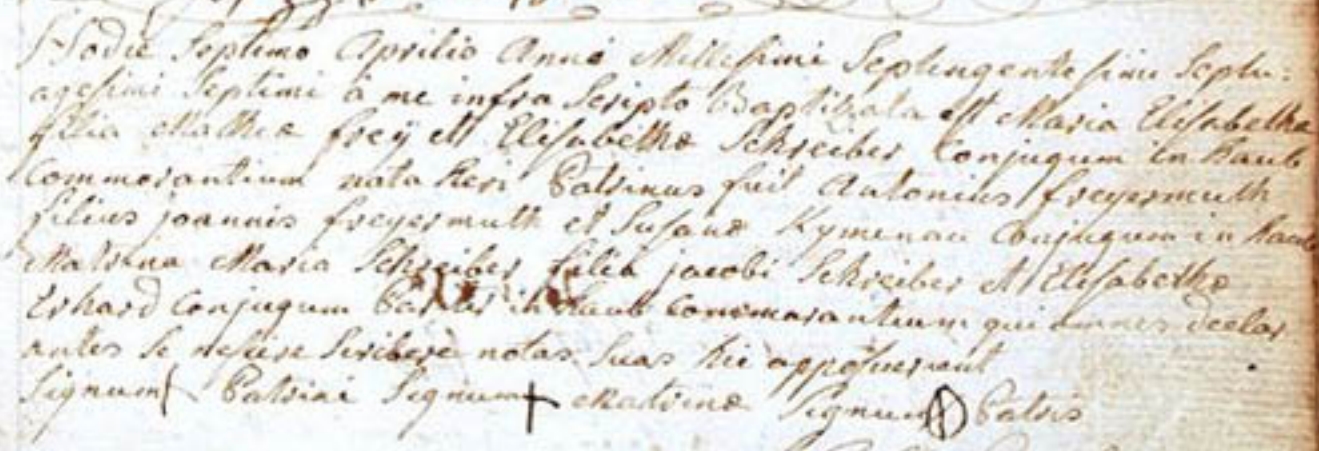 Hodie Septimo Aprilis Anni Millesimi Septingentesimi Septu-
agesimi Septimi à me infra Scripto Baptizata est Maria Elisabetha
filia Mathiæ frey et Elisabethæ Schreiber Conjugum in Kaub
Commorantium nata heri Patrinus fuit Antonius freyermuth
filius joannis freyermuth et Susanæ Conjugum in Kaub
Matrina Maria Schreiber filia jacobi Schreiber et Elisabethæ
Erhard Conjugum in Kaub Commorantium qui omnes declar
antes se nescire Scribere notas Suas hic apposuerunt
Signum Patrini Signum Matrinæ Signum Patris